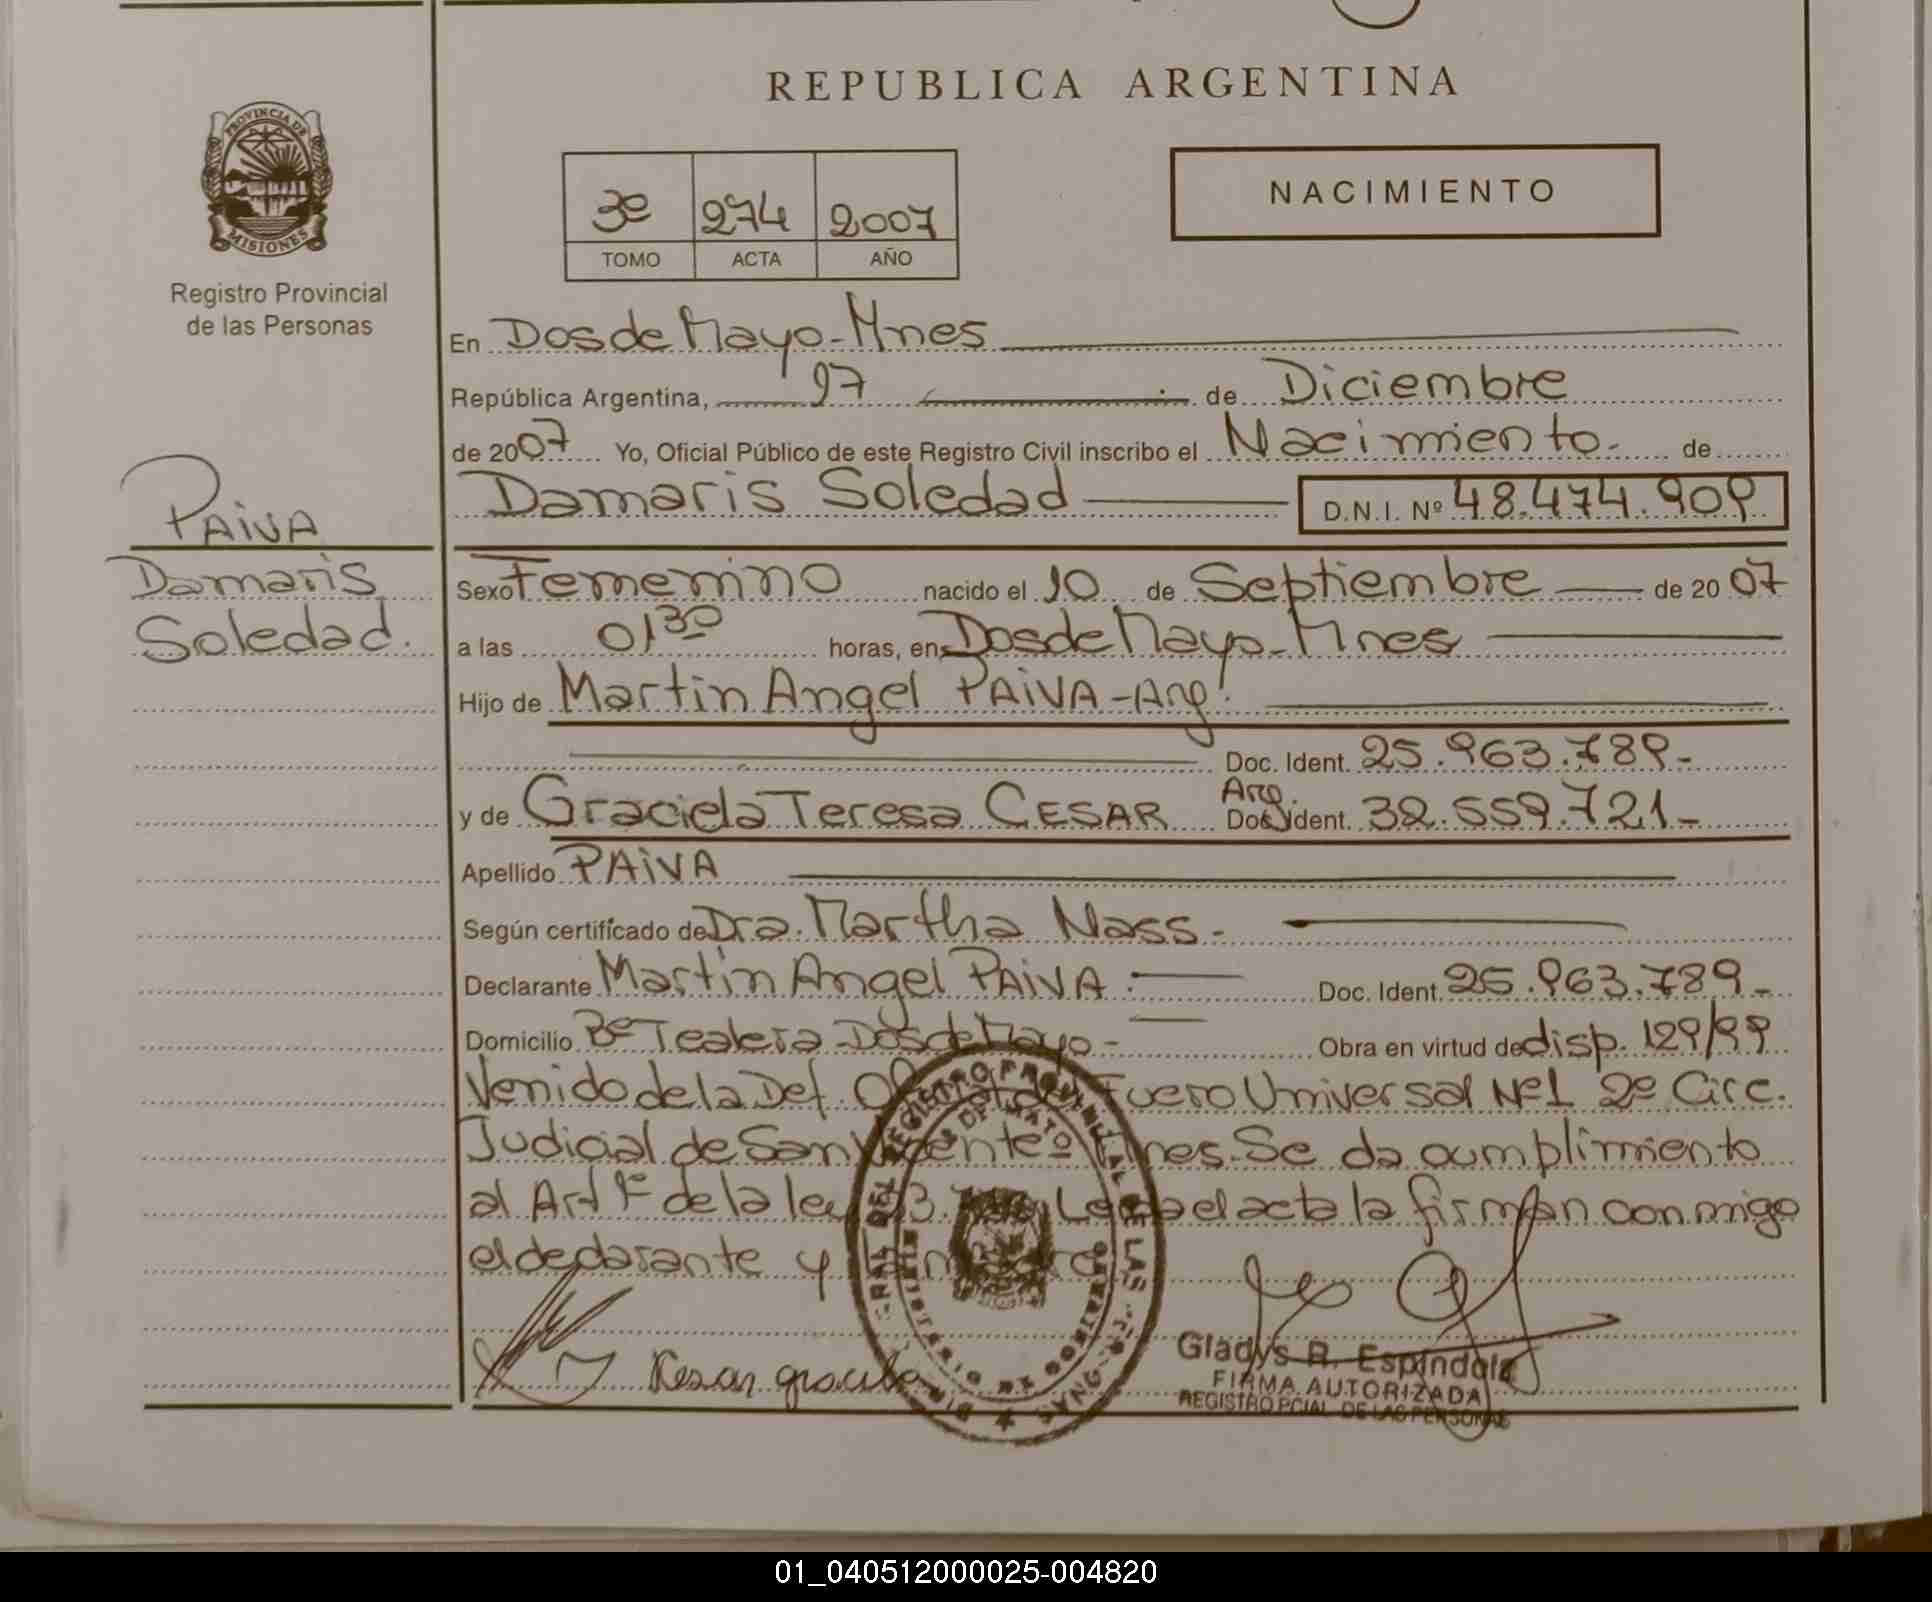 REPUBLICA ARGENTINA
PROVINCIA DE
MISIONES
Registro Provincial
de las Personas
3º 274 2007
TOMO ACTA AÑO
NACIMIENTO
En Dos de Mayo-Mnes
República Argentina, 27 de Diciembre
de 2007 Yo, Oficial Público de este Registro Civil inscribo el Nacimiento. de
PAIVA
Damaris
Soledad.
Damaris Soledad D.N.I. Nº 48.474.909
Sexo Femenino nacido el 10 de Septiembre de 2007
a las 01 30 horas, en Dos de Mayo-Mnes
Hijo de Martin Angel PAIVA-Arg.
Doc. Ident. 25.963.789-
y de Graciela Teresa CESAR Arg. Doc. Ident. 32.559.721-
Apellido PAIVA
Según certificado de Dra. Martha Nass.-
Declarante Martin Angel PAIVA Doc. Ident. 25.963.789-
Domicilio Bº Tealera Dos de Mayo- Obra en virtud de disp. 129/99
Venido de la Def. Fuero Universal Nº1 2º Circ.
Judicial de San Vicente Mnes. Se da cumplimiento
al Art 1º de la ley Leida el acta la firman conmigo
el declarante y
Kesar graciela
Gladys R. Espindola
FIRMA AUTORIZADA
REGISTRO PCIAL DE LAS PERSONAS
01_040512000025-004820